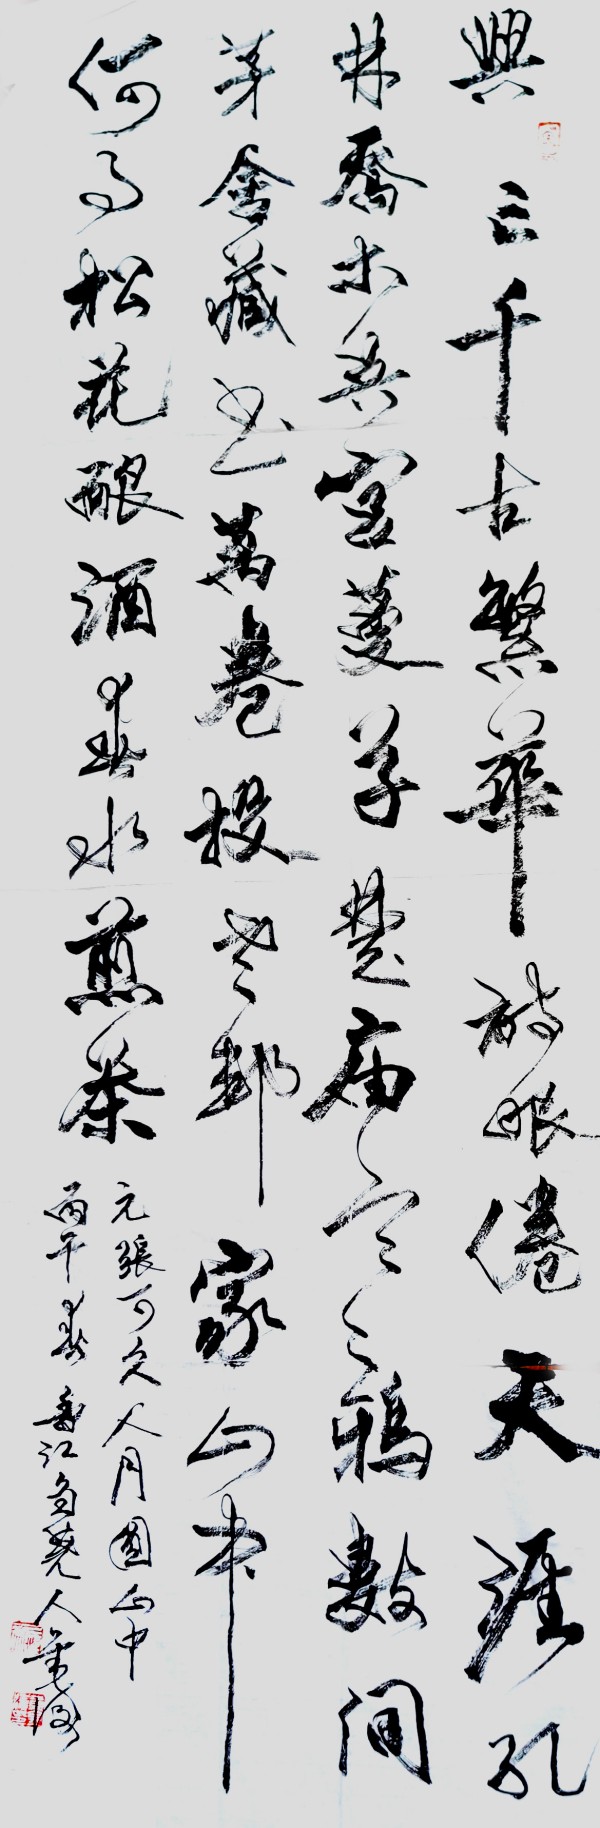 興亡千古繁華詩眼倦天涯孔
林喬木吳宮蔓草楚庙寒鴉數間
茅舍藏书萬卷投老邨家山中
何事松花酿酒春水煎茶
元張可久人月圓山中
丙午春香江芻蕘人